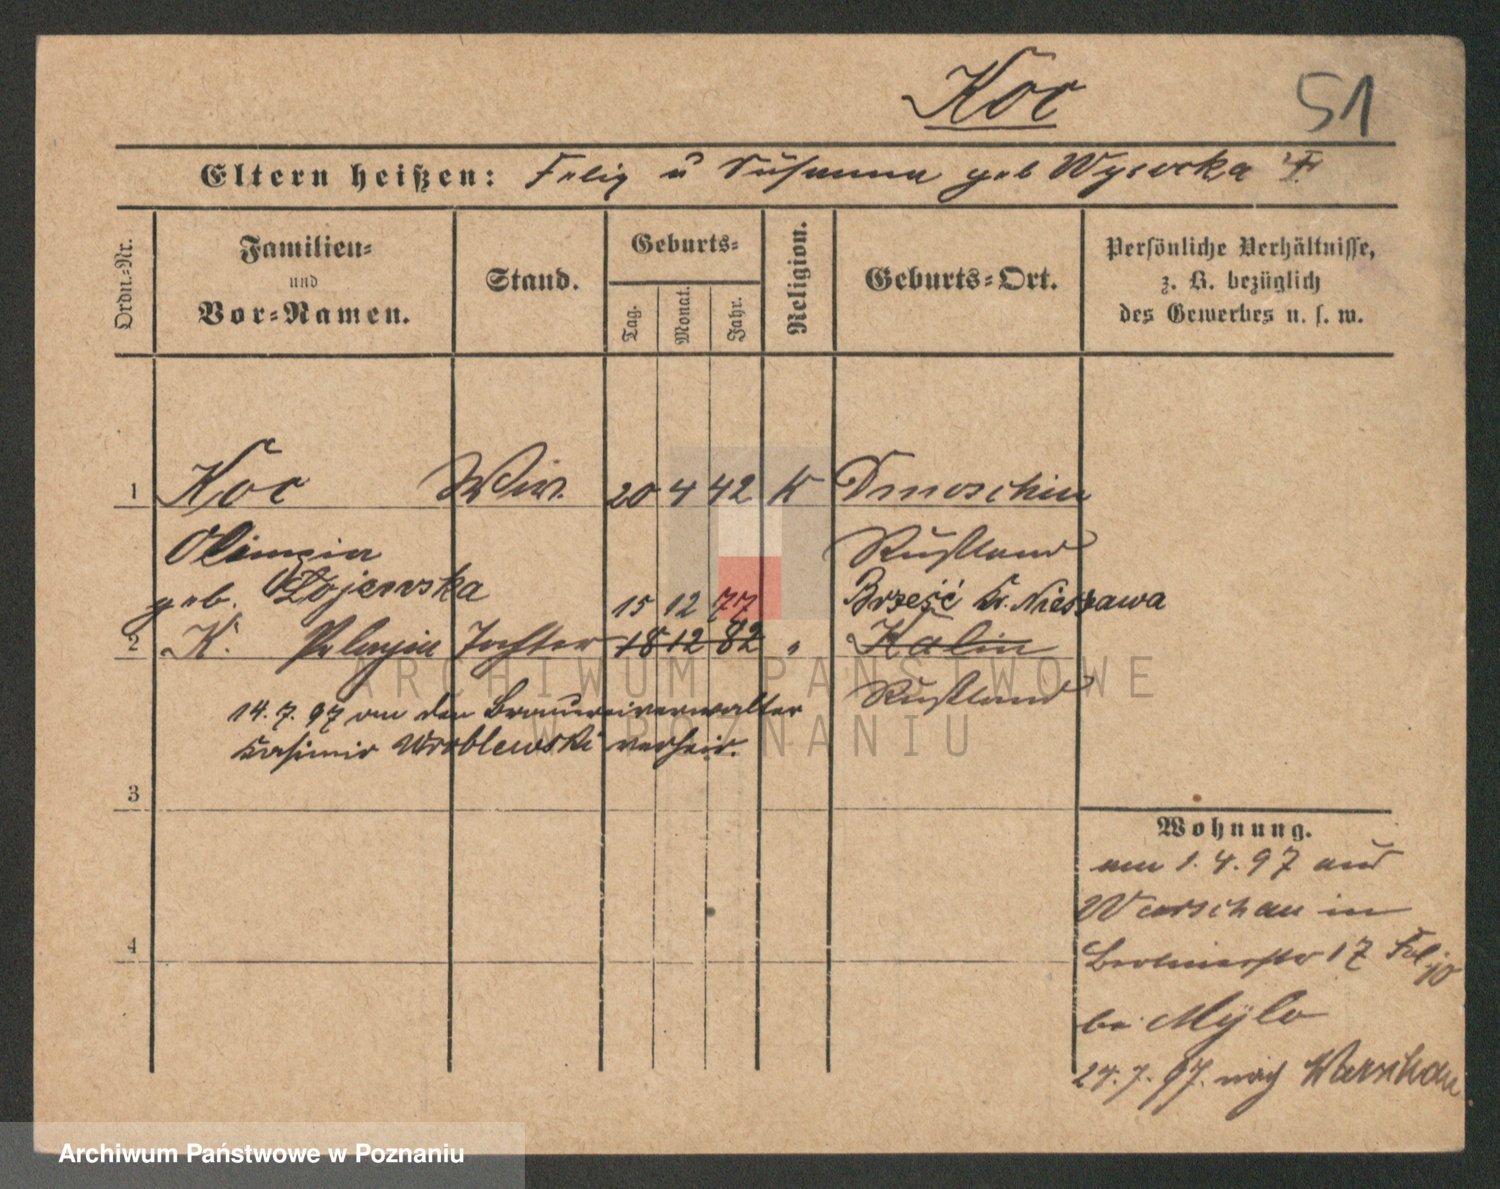 Koc
51
Eltern heißen: Felix u Susanna geb Wysocka
Ordn.-Nr.
Familien-
und
Vor-Namen.
Stand.
Geburts-
Tag.
Monat.
Jahr.
Religion.
Geburts-Ort.
Persönliche Verhältnisse,
z. B. bezüglich
des Gewerbes u. s. w.
1 Koc Ww. 20 4 42 K Dmoschin
Olimpia Rußland
geb. 15 12 77 Brześć Kr. Nieszawa
2 K. Pelagia Tochter 18 12 82 " Kalin
Rußland
14. 7. 97 an den Brauereiverwalter
Kasimir Wroblewski verheir.
3
4
Wohnung.
am 1. 4. 97 aus
Warschau in
Berlinerstr 17
bei Mylo
24. 7. 97. nach Warschau
ARCHIWUM PAŃSTWOWE
W POZNANIU
Archiwum Państwowe w Poznaniu